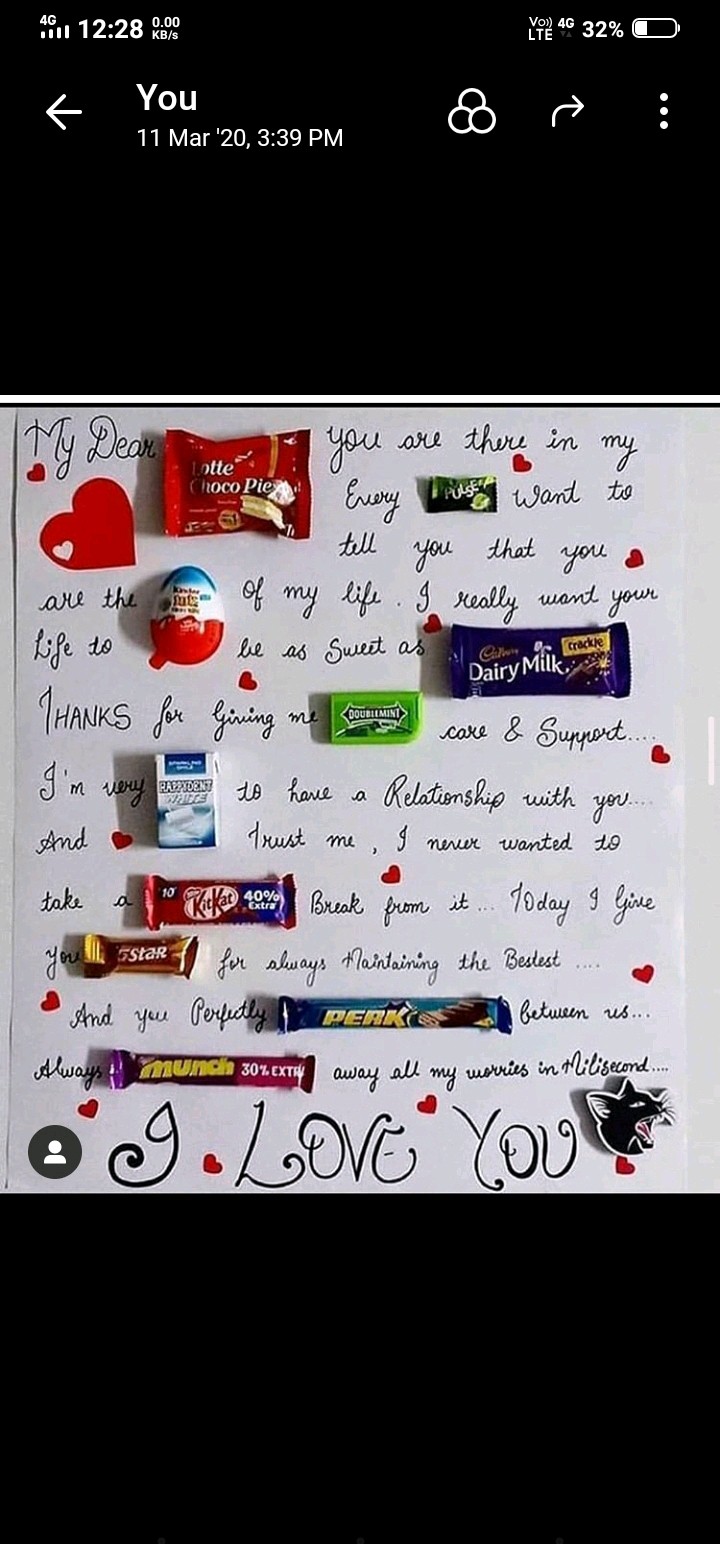 4G 12:28 0.00 KB/s Vo)) LTE 4G 32%
You
11 Mar '20, 3:39 PM
My Dear Lotte Choco Pie you are there in my
Every PULSE Want to
tell you that you
are the Kinder Joy of my life . I really want your
Life to be as Sweet as Cadbury Dairy Milk crackle
THANKS for Giving me DOUBLEMINT care & Support....
I'm very HAPPYDENT WHITE to have a Relationship with you....
And Trust me , I never wanted to
take a 10 Nestle KitKat 40% Extra Break from it... Today I Give
You 5STAR for always Maintaining the Bestest ....
And you Perfectly PERK between us...
Always munch 30% EXTRA away all my worries in Milisecond....
I LOVE YOU